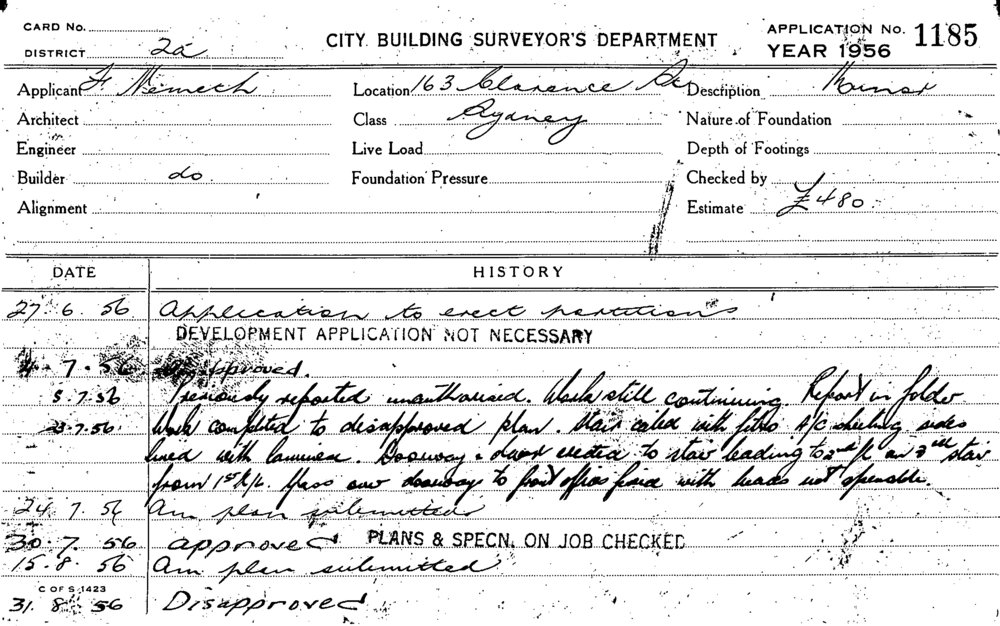 CARD No.
DISTRICT 2a
CITY BUILDING SURVEYOR'S DEPARTMENT
APPLICATION No. 1185
YEAR 1956
Applicant F Nemeth
Location 163 Clarence St
Description Minor
Architect
Class Sydney
Nature of Foundation
Engineer
Live Load
Depth of Footings
Builder do
Foundation Pressure
Checked by
Alignment
Estimate £480
DATE HISTORY
27. 6. 56 Application to erect partitions
DEVELOPMENT APPLICATION NOT NECESSARY
4. 7. 56 approved.
5.7.56 Previously reported unauthorised. Work still continuing. Report in folder
.7.56. Work completed to disapproved plan. Stair with A/C sheeting sides
lined with . Doorway & door erected to stair leading to 2nd fl on stair
from 1st fl. Glass over doorway to front office fixed with beads not openable.
24. 7. 56 Am plan submitted
30. 7. 56 approved PLANS & SPECN. ON JOB CHECKED
15. 8. 56 Am plan submitted
C OF S 1423
31. 8. 56 Disapproved